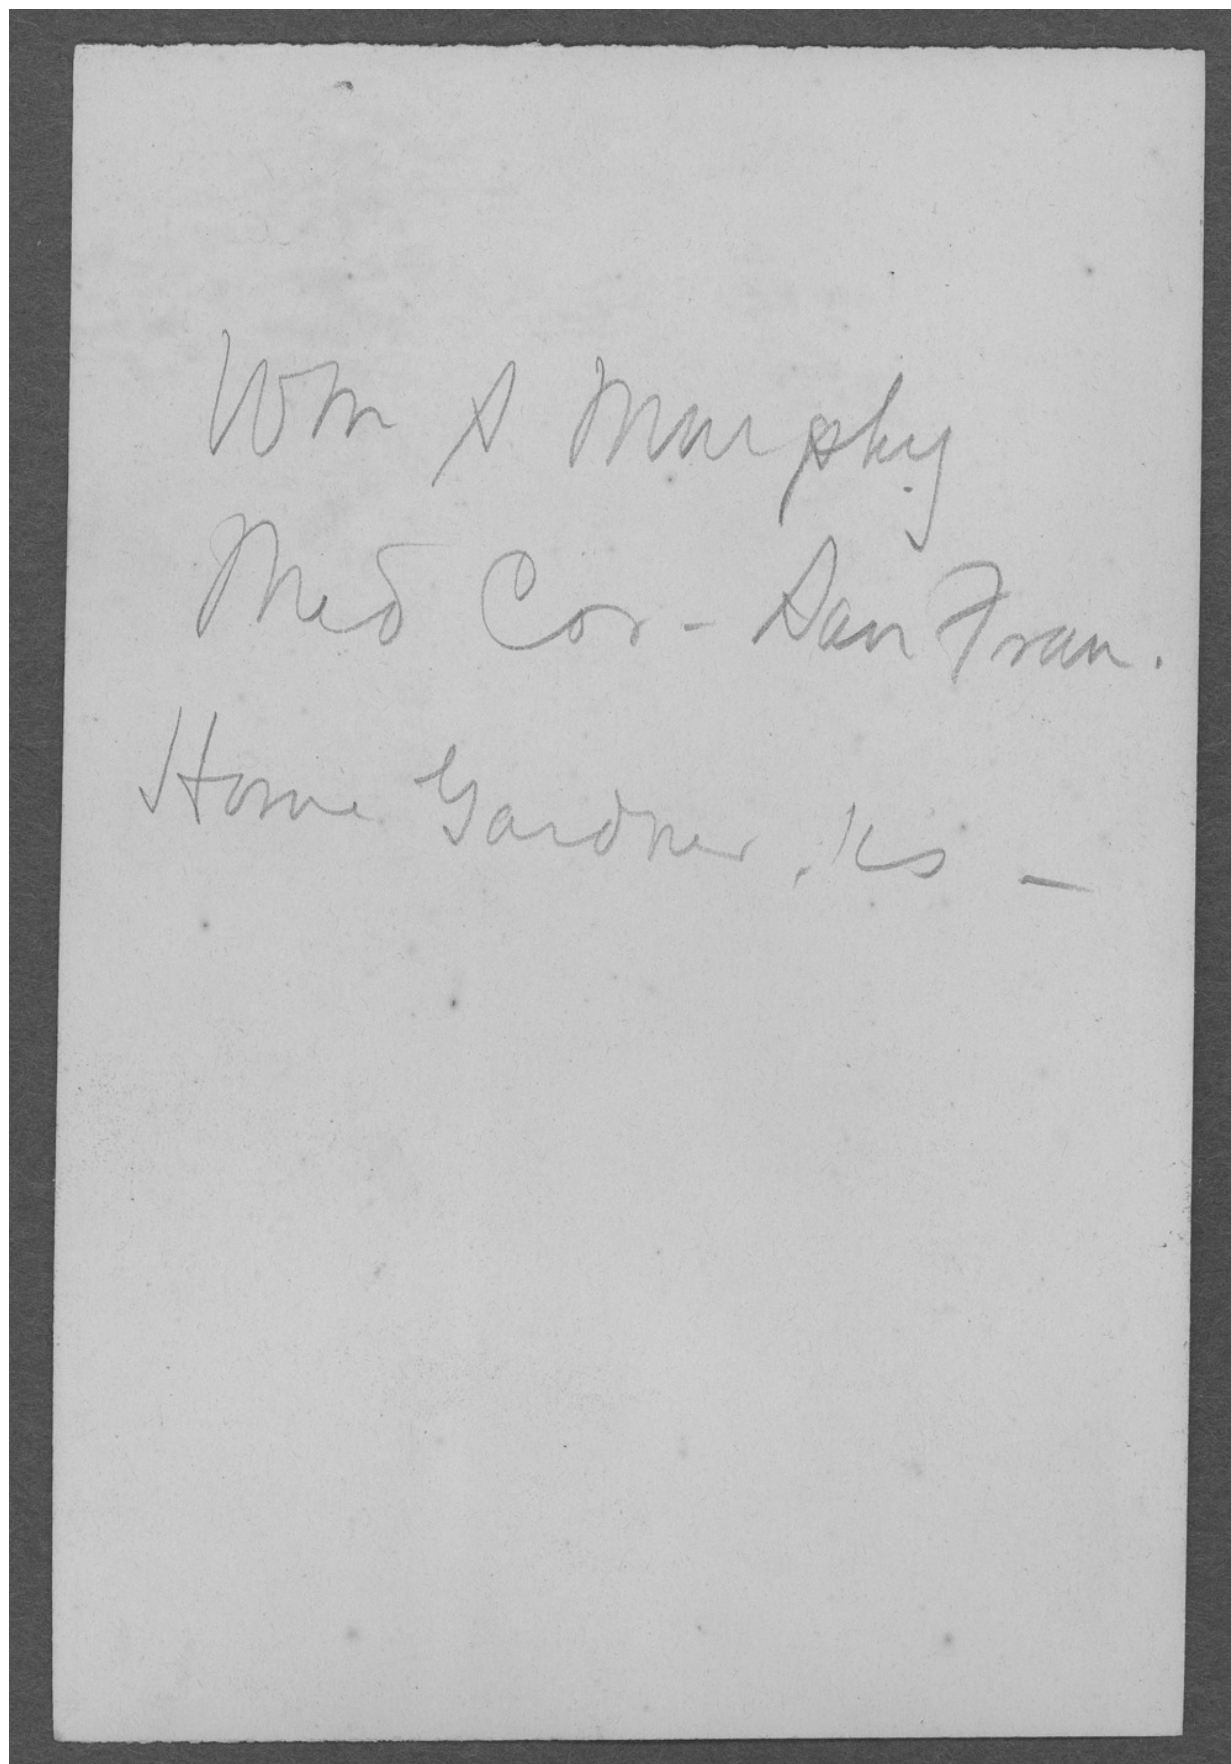 Wm S Murphy
Med Cor - San Fran.
Home Gardner, Ks -